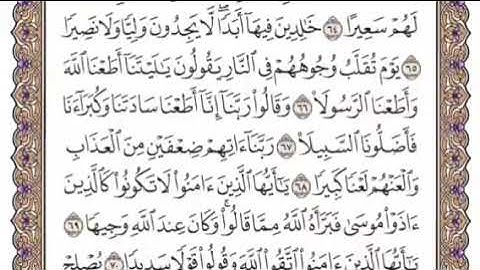 لَهُمْ سَعِيرًا ٦٤ خَٰلِدِينَ فِيهَآ أَبَدًا ۖ لَّا يَجِدُونَ وَلِيًّا وَلَا نَصِيرًا
٦٥ يَوْمَ تُقَلَّبُ وُجُوهُهُمْ فِى ٱلنَّارِ يَقُولُونَ يَٰلَيْتَنَآ أَطَعْنَا ٱللَّهَ
وَأَطَعْنَا ٱلرَّسُولَا۠ ٦٦ وَقَالُوا۟ رَبَّنَآ إِنَّآ أَطَعْنَا سَادَتَنَا وَكُبَرَآءَنَا
فَأَضَلُّونَا ٱلسَّبِيلَا۠ ٦٧ رَبَّنَآ ءَاتِهِمْ ضِعْفَيْنِ مِنَ ٱلْعَذَابِ
وَٱلْعَنْهُمْ لَعْنًا كَبِيرًا ٦٨ يَٰٓأَيُّهَا ٱلَّذِينَ ءَامَنُوا۟ لَا تَكُونُوا۟ كَٱلَّذِينَ
ءَاذَوْا۟ مُوسَىٰ فَبَرَّأَهُ ٱللَّهُ مِمَّا قَالُوا۟ ۚ وَكَانَ عِندَ ٱللَّهِ وَجِيهًا ٦٩
يَٰٓأَيُّهَا ٱلَّذِينَ ءَامَنُوا۟ ٱتَّقُوا۟ ٱللَّهَ وَقُولُوا۟ قَوْلًا سَدِيدًا ٧٠ يُصْلِحْ